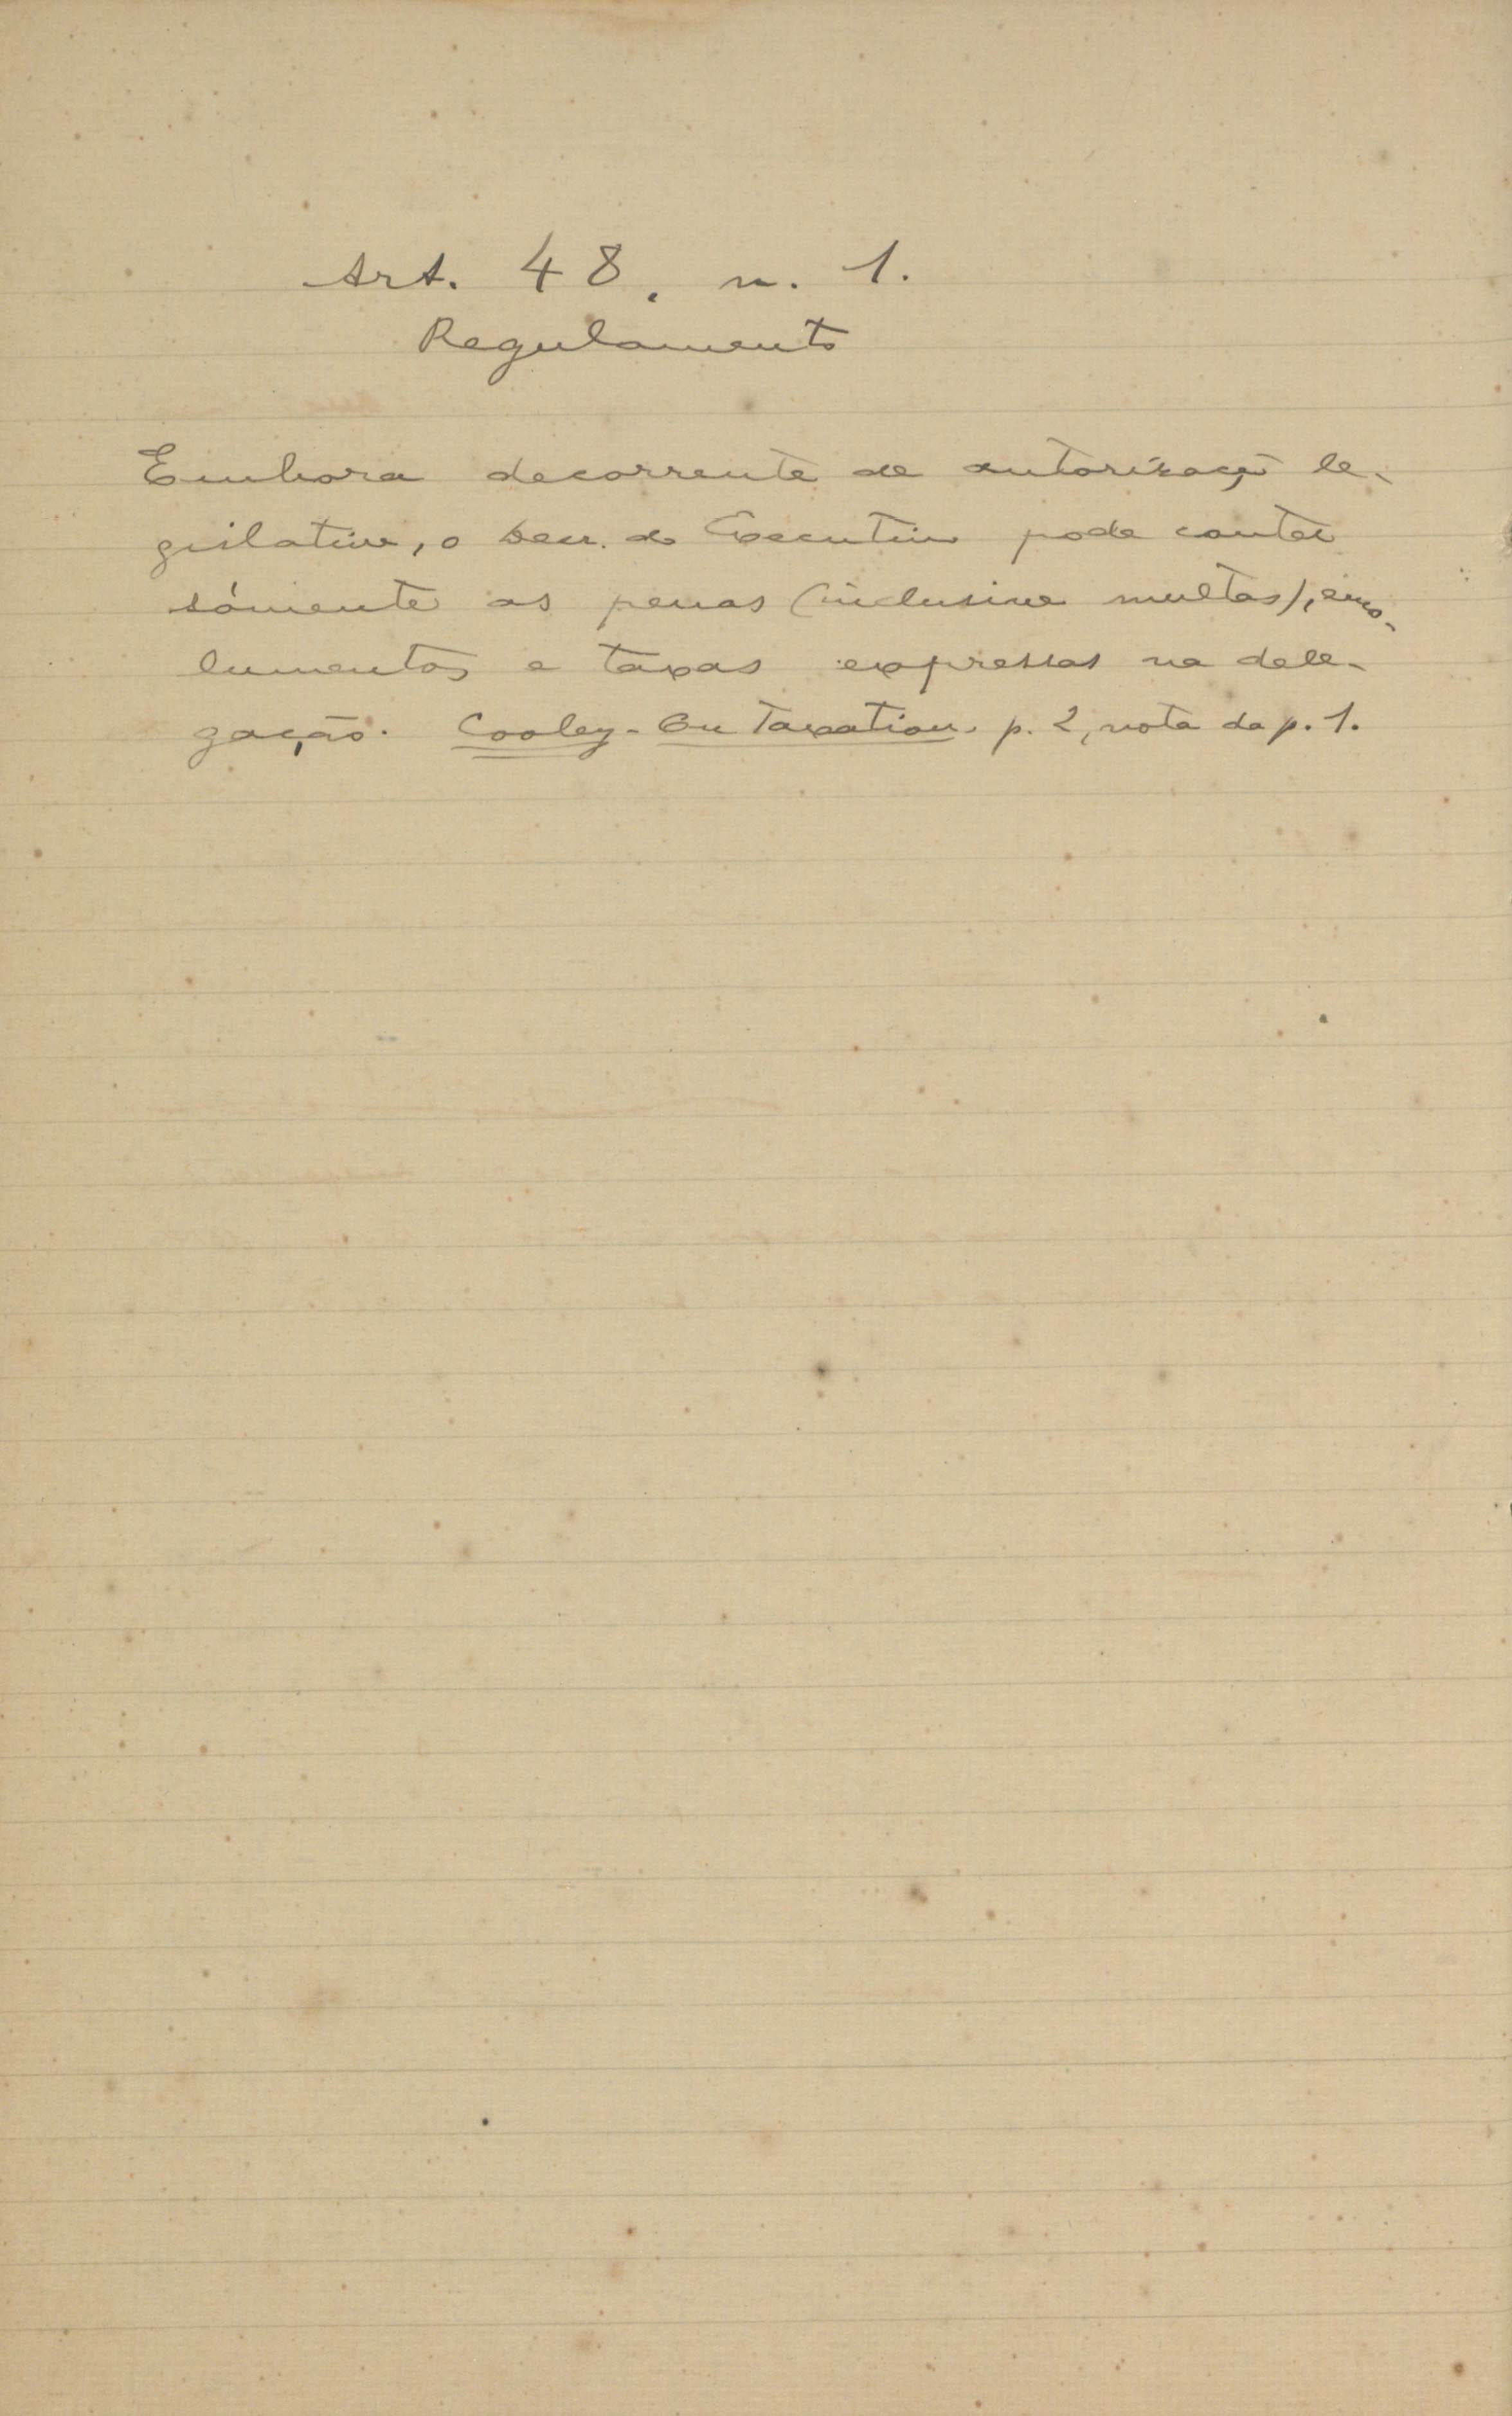 Art. 48, n. 1.
Regulamento
Embora decorrente de autorização le-
gislativa, o Dec. do Executivo pode conter
sómente as penas (inclusive multas), emo-
lumentos e taxas expressas na dele-
gação. Cooley - On Taxation, p. 2, nota da p. 1.